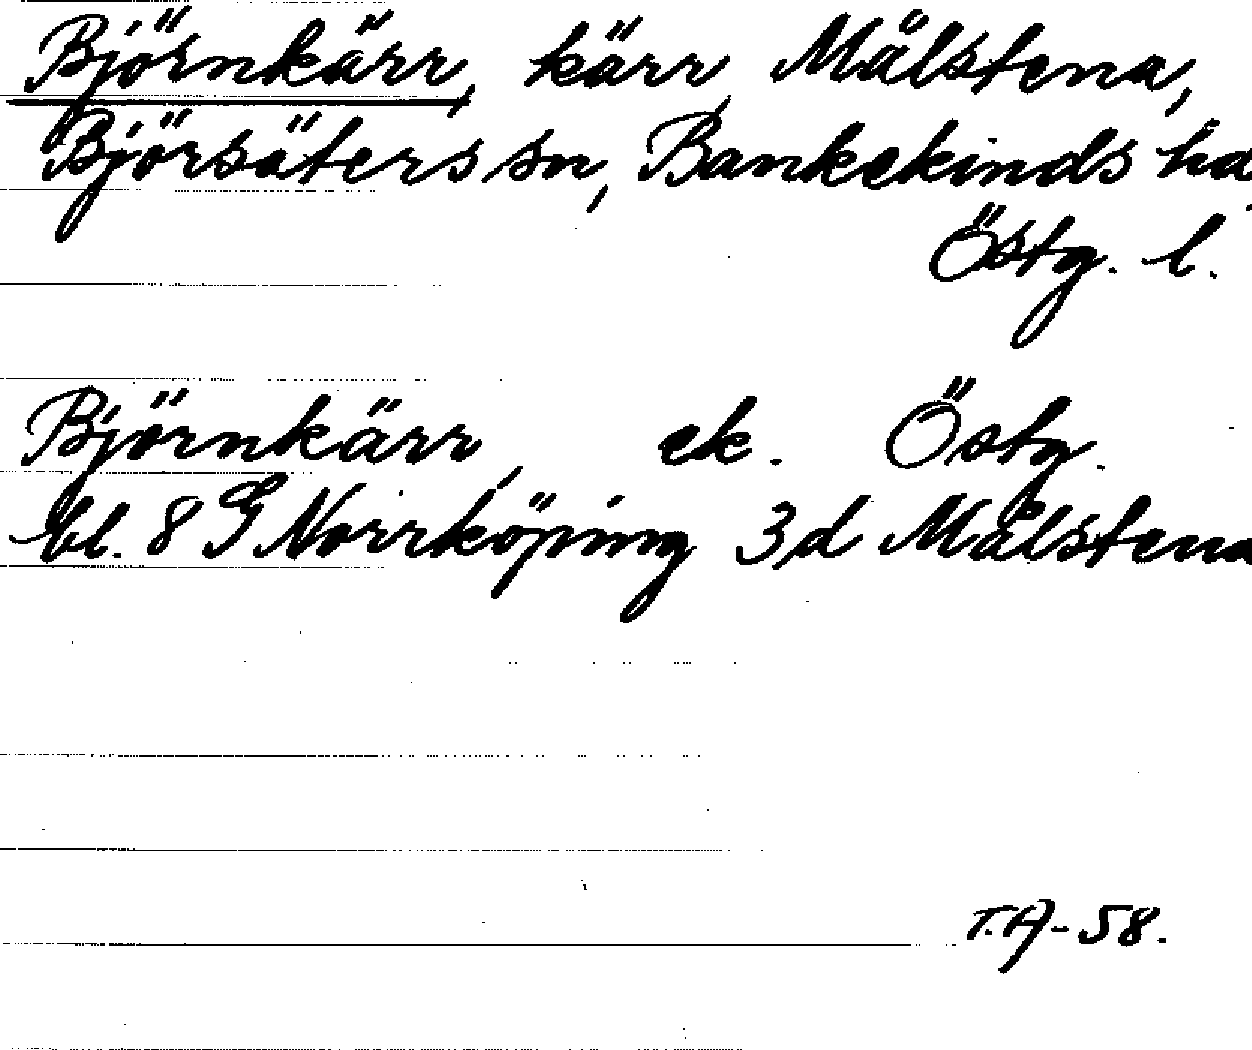 Björnkärr, kärr, Mälstena,
Björsäters sn, Bankekinds hd
Östg. l.
Björnkärr, ek. Östg.
bl. 8 G Norrköping 3d Mälstena
T.A-58.